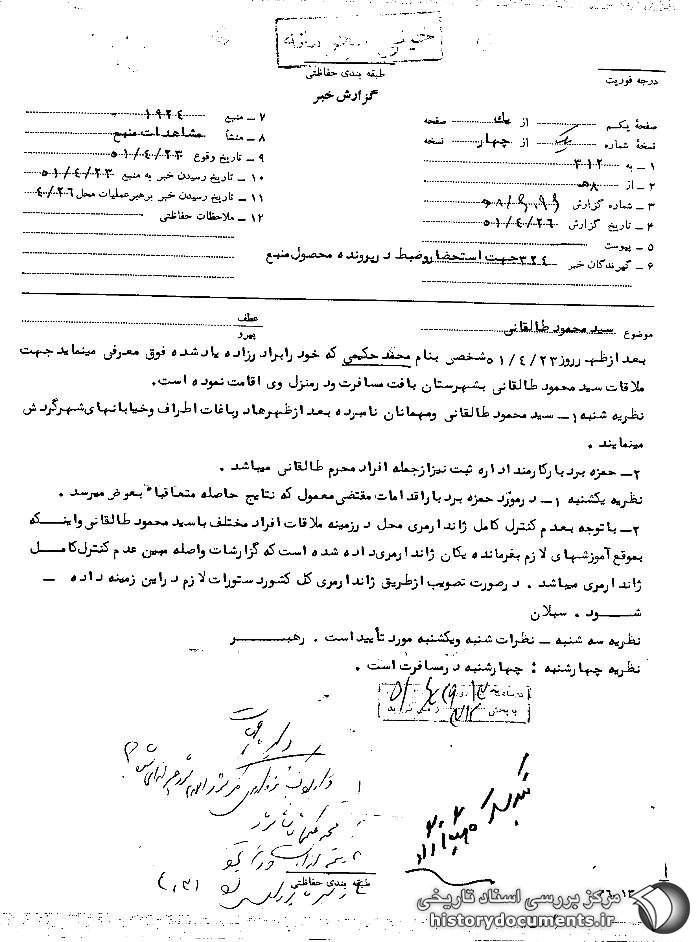 خیلی محرمانه
طبقه بندی حفاظتی
درجه فوریت
گزارش خبر
صفحهٔ یکم از یک صفحه
نسخهٔ شماره یک از چهار نسخه
۱ – به ۳۱۲
۲ – از ۸هـ
۳ – شماره گزارش
۴ – تاریخ گزارش ۵۱/۴/۲۶
۵ – پیوست
۶ – گیرندگان خبر ۳۲۴جهت استحضار وضبط در پرونده محصول منبع
۷ – منبع ۱۹۲۴
۸ – منشأ مشاهدات منبع
۹ – تاریخ وقوع ۵۱/۴/۲۳
۱۰ – تاریخ رسیدن خبر به منبع ۵۱/۴/۲۳
۱۱ – تاریخ رسیدن خبر برهبرعملیات محل ۴/۲۶
۱۲ – ملاحظات حفاظتی
موضوع سید محمود طالقانی
عطف
پیرو
بعد ازظهر روز ۵۱/۴/۲۳ شخصی بنام محمد حکیمی که خود را برادرزاده یادشده فوق معرفی مینماید جهت
ملاقات سید محمود طالقانی بشهرستان بافت مسافرت ودر منزل وی اقامت نموده است.
نظریه شنبه ۱– سید محمود طالقانی ومهمانان نامبرده بعد ازظهرها در باغات اطراف وخیابانهای شهر گردش
مینمایند .
۲– حمزه بردبار کارمند اداره ثبت نیز ازجمله افراد محرم طالقانی میباشد .
نظریه یکشنبه ۱– در مورد حمزه بردبار اقدامات مقتضی معمول که نتایج حاصله متعاقباً بعرض میرسد .
۲– با توجه بعدم کنترل کامل ژاندارمری محل در زمینه ملاقات افراد مختلف با سید محمود طالقانی واینکه
بموقع آموزشهای لازم بفرمانده یکان ژاندارمری داده شده است که گزارشات واصله مبین عدم کنترل کامل
ژاندارمری میباشد . در صورت تصویب ازطریق ژاندارمری کل کشور دستورات لازم در این زمینه داده –
شود . سبلان
نظریه سه شنبه – نظرات شنبه ویکشنبه مورد تأیید است . رهبر
نظریه چهارشنبه : چهارشنبه در مسافرت است .
طبقه بندی حفاظتی
مرکز بررسی اسناد تاریخی
historydocuments.ir